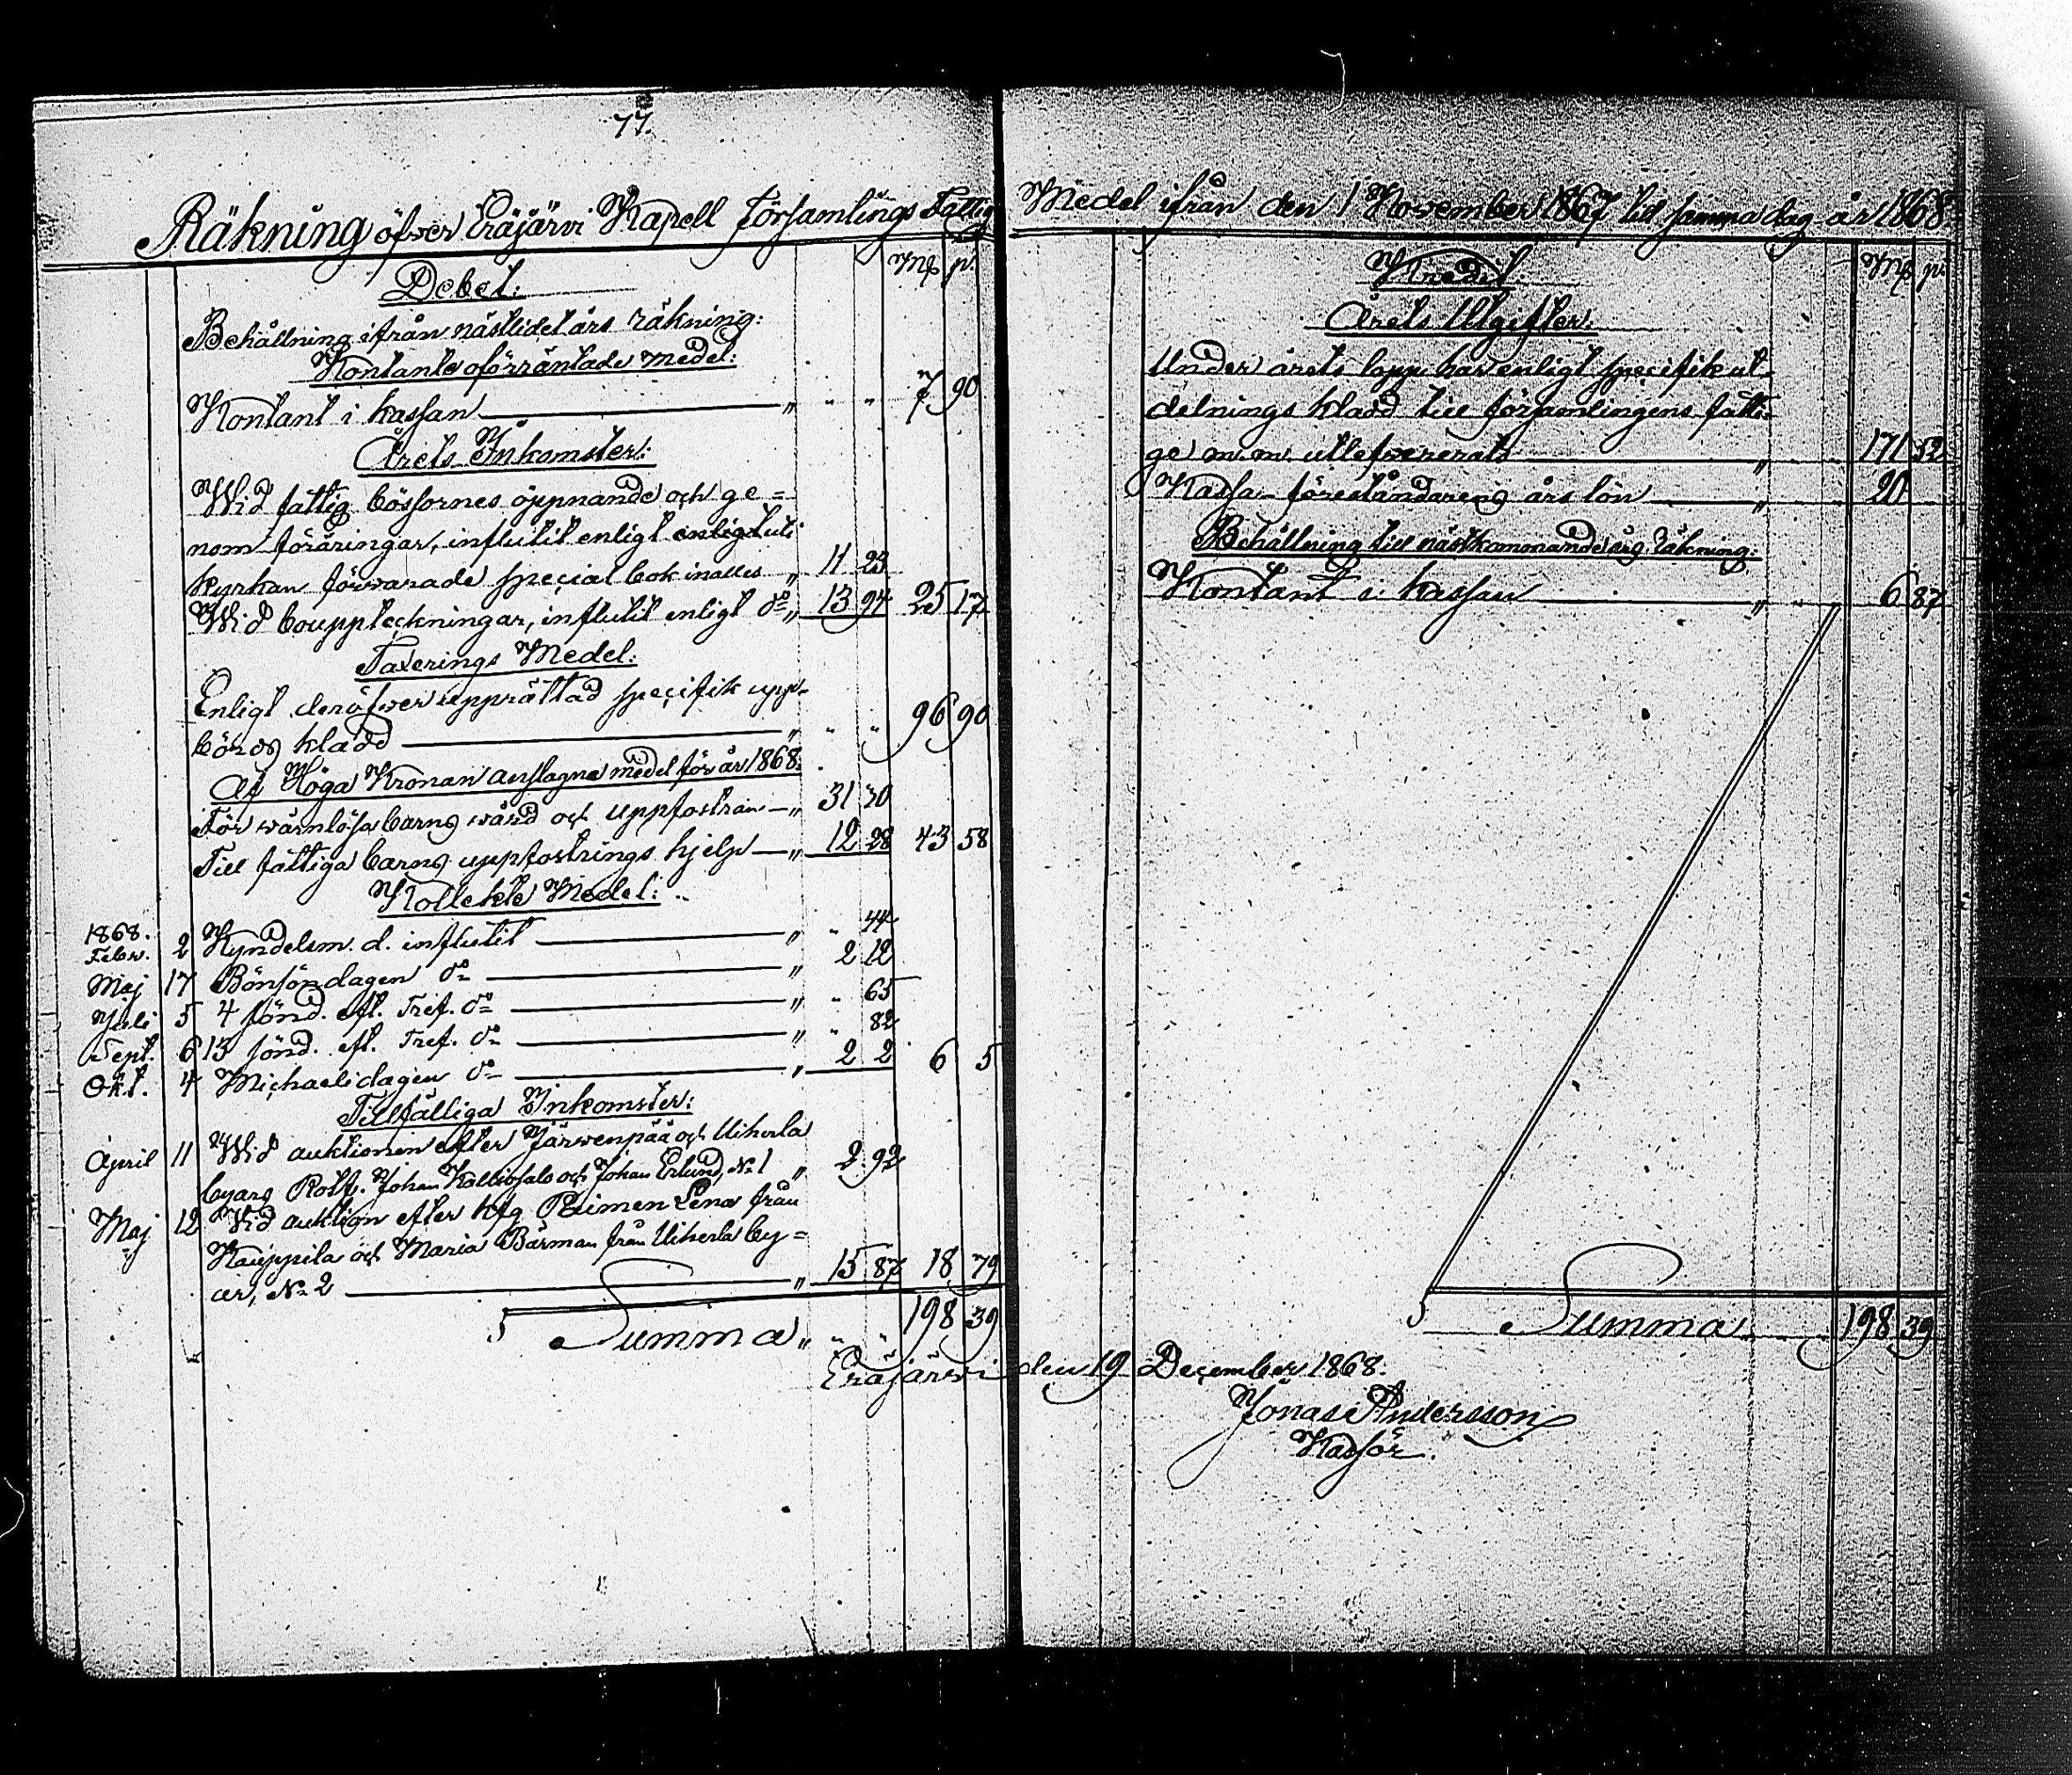 77.
Räkning öfwer Eräjärvi Kapell Församlings Fattig
Debet: Mk p.
Behållning ifrån nästlidet års räkning:
Kontante oförräntade medel:
Kontant i kassan " " " 7 90
Årets Inkomster:
Wid fattig bössornes öppnande och ge=
nom föräringar, influtit enligt enligt uti
kyrkan förwarade special bok inalles " 11 23
Wid bouppteckningar, influtit enligt do " 13 94 25 17
Taxerings Medel:
Enligt deröfwer upprättad specifik upp-
börds kladd " " " 96 90
Af Höga Kronan anslagne medel för år 1868:
För wärnlösa barns wård och uppfostran " 31 30
Till fattiga barns uppfostrings hjelp " 12 28 43 58
Kollekte Medel:
1868.
Febr. 2 Kyndelsm. d. influtit " " 44
Maj 17 Bönsöndagen do " 2 12
Juli 5 4 sönd. eft. Tref. do " " 65
Sept. 6 13 sönd. eft. Tref. do " " 82
Okt. 4 Michaelidagen do " 2 2 6 5
Tillfälliga Inkomster:
April 11 Wid auktionen efter Järwenpää och Uiherla
byars Rotf. Johan Kalliosalo och Johan Erlund, No 1 " 2 92
Maj 12 Wid auktion efter hfg Reimen Lena från
Kauppila och Maria Bärman från Uiherla by=
ar, No 2 " 15 87 18 79
Summa " " " 198 39
Eräjärwi
Medel ifrån den 1 November 1867 till samma dag år 1868.
Kredit: Mk p.
Årets Utgifter:
Under årets lopp har enligt specifik ut-
delnings kladd till församlingens fatti-
ge m. m. utlefwererats " 171 52
Kassa-föreståndarens års lön " 20
Behållning till nästkommande års räkning:
Kontant i kassan " " 6 87
Summa 198 39
den 19 December 1868.
Jonas Andersson
Kassör.